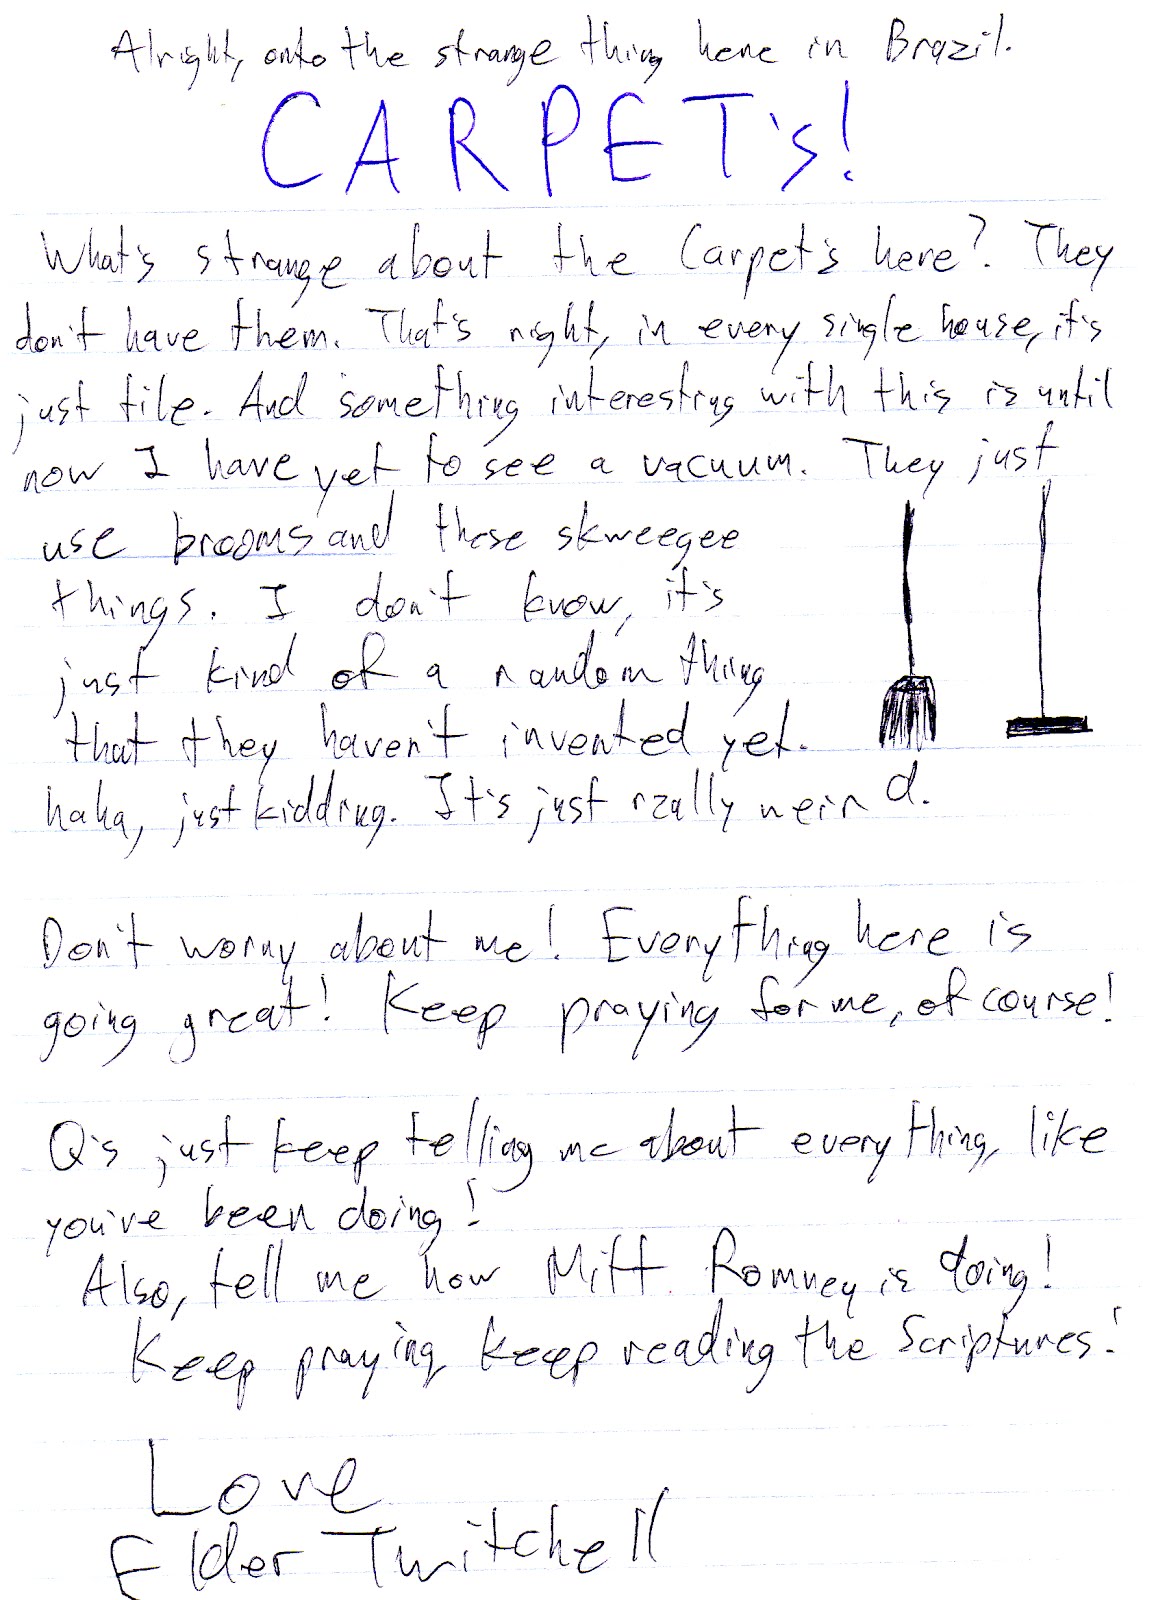 Alright, onto the strange thing here in Brazil.
CARPET's!
What's strange about the Carpet's here? They
don't have them. That's right, in every single house, it's
just tile. And something interesting with this is until
now I have yet to see a vacuum. They just
use brooms and these skweegee
things. I don't know, it's
just kind of a random thing
that they haven't invented yet.
haha, just kidding. It's just really weird.
Don't worry about me! Everything here is
going great! Keep praying for me, of course!
Q's just keep telling me about everything, like
you've been doing!
Also, tell me how Mitt Romney is doing!
Keep praying, keep reading the Scriptures!
Love
Elder Twitchell